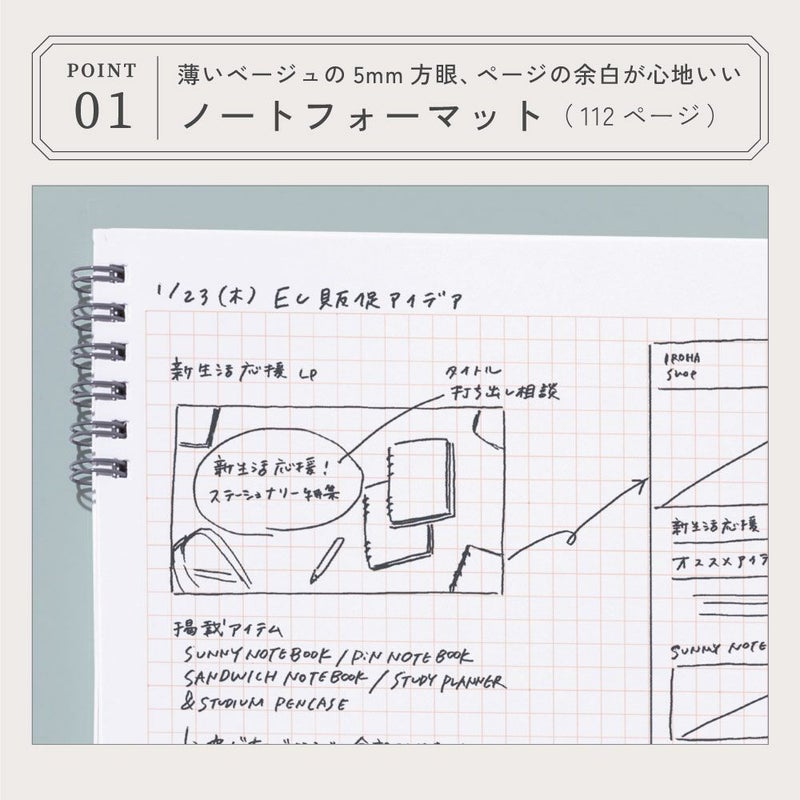 POINT
01
薄いベージュの5mm方眼、ページの余白が心地いい
ノートフォーマット（112ページ）
1/23(木) EC販促アイデア
新生活応援 LP
タイトル
打ち出し相談
新生活応援！
ステーショナリー特集
掲載アイテム
SUNNY NOTEBOOK / PiN NOTEBOOK
SANDWICH NOTEBOOK / STUDY PLANNER
& STUDIUM PENCASE
IROHA
SHOP
新生活応援
オススメアイテ
SUNNY NOTE